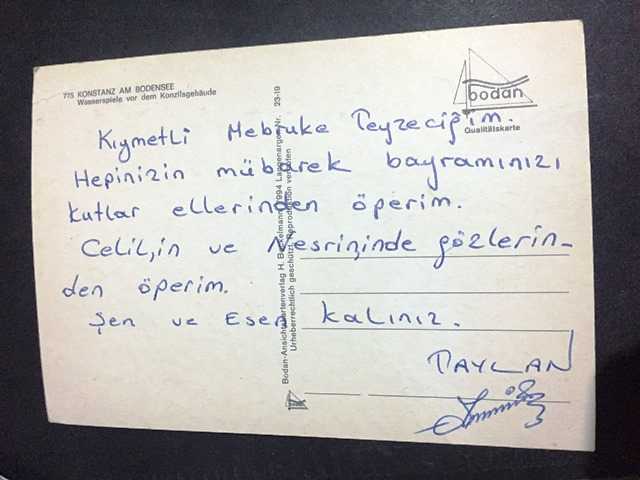 775 KONSTANZ AM BODENSEE
Wasserspiele vor dem Konzilsgebäude
bodan
Qualitätskarte
Kıymetli Mebruke Teyzeciğim.
Hepinizin mübarek bayramınızı
kutlar ellerinden öperim.
Celil,in ve Nesrininde gözlerin-
den öperim.
Şen ve Esen kalınız.
TAYLAN
23-19
Bodan-Ansichtskartenverlag H. 7994 Langenargen Nr.
Urheberrechtlich geschützt, Reproduktion verboten